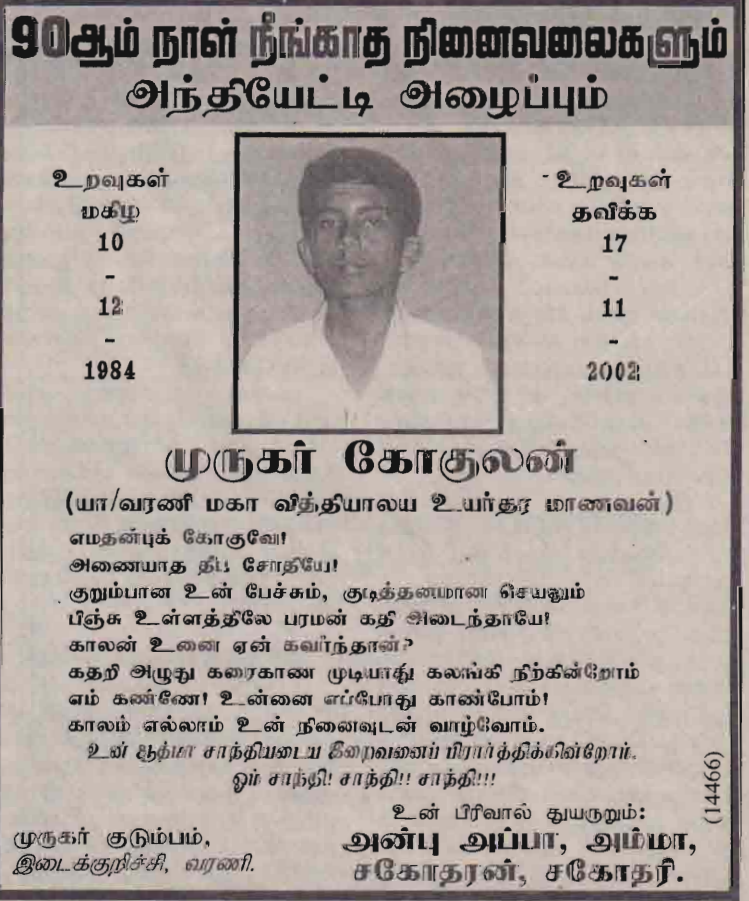 90ஆம் நாள் நீங்காத நினைவலைகளும்
அந்தியேட்டி அழைப்பும்
உறவுகள்
மகிழ
10
-
12
-
1984
உறவுகள்
தவிக்க
17
-
11
-
2002
முருகர் கோகுலன்
(யா/வரணி மகா வித்தியாலய உயர்தர மாணவன்)
எமதன்புக் கோகுவே!
அணையாத தீப சோதியே!
குறும்பான உன் பேச்சும், குடித்தனமான செயலும்
பிஞ்சு உள்ளத்திலே பரமன் கதி அடைந்தாயே!
காலன் உனை ஏன் கவர்ந்தான்?
கதறி அழுது கரைகாண முடியாது கலங்கி நிற்கின்றோம்
எம் கண்ணே! உன்னை எப்போது காண்போம்!
காலம் எல்லாம் உன் நினைவுடன் வாழ்வோம்.
உன் ஆத்மா சாந்தியடைய இறைவனைப் பிரார்த்திக்கின்றோம்.
ஓம் சாந்தி! சாந்தி!! சாந்தி!!!
உன் பிரிவால் துயருறும்:
அன்பு அப்பா, அம்மா,
சகோதரன், சகோதரி.
முருகர் குடும்பம்,
இடைக்குறிச்சி, வரணி.
(14466)